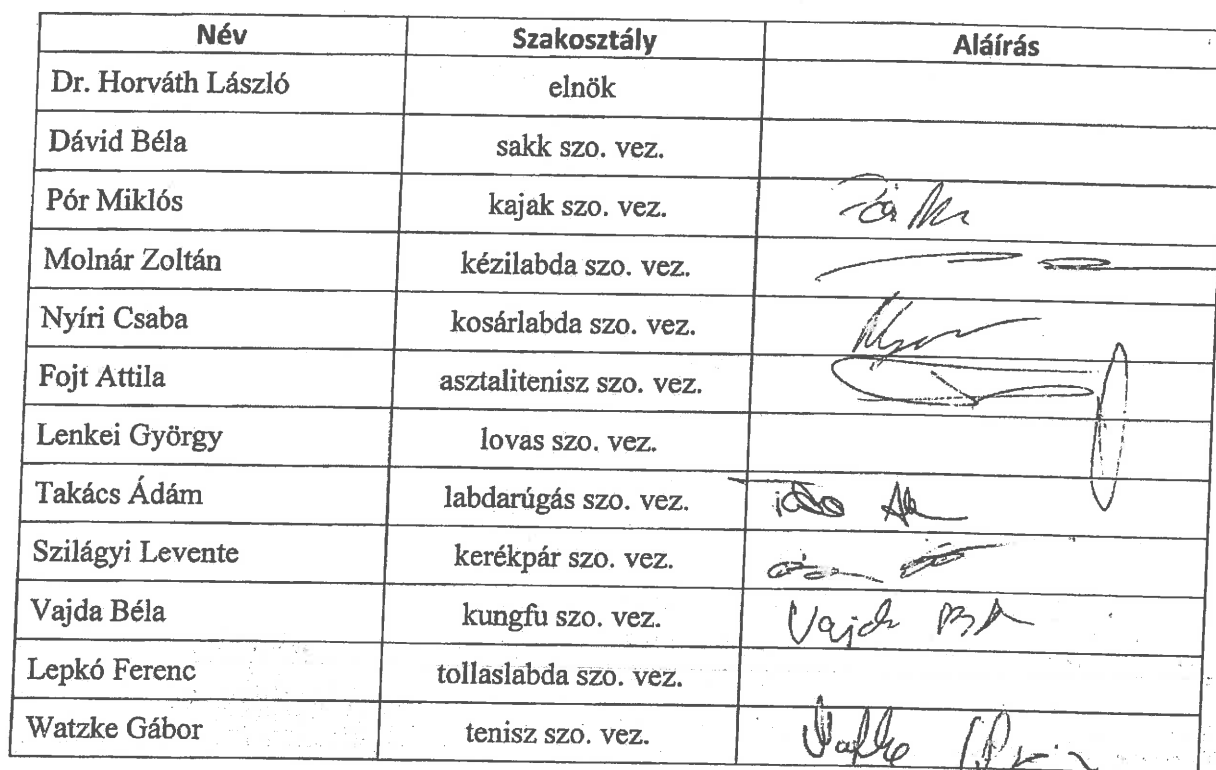 Név Szakosztály Aláírás
Dr. Horváth László elnök
Dávid Béla sakk szo. vez.
Pór Miklós kajak szo. vez.
Molnár Zoltán kézilabda szo. vez.
Nyíri Csaba kosárlabda szo. vez.
Fojt Attila asztalitenisz szo. vez.
Lenkei György lovas szo. vez.
Takács Ádám labdarúgás szo. vez.
Szilágyi Levente kerékpár szo. vez.
Vajda Béla kungfu szo. vez.
Lepkó Ferenc tollaslabda szo. vez.
Watzke Gábor tenisz szo. vez.